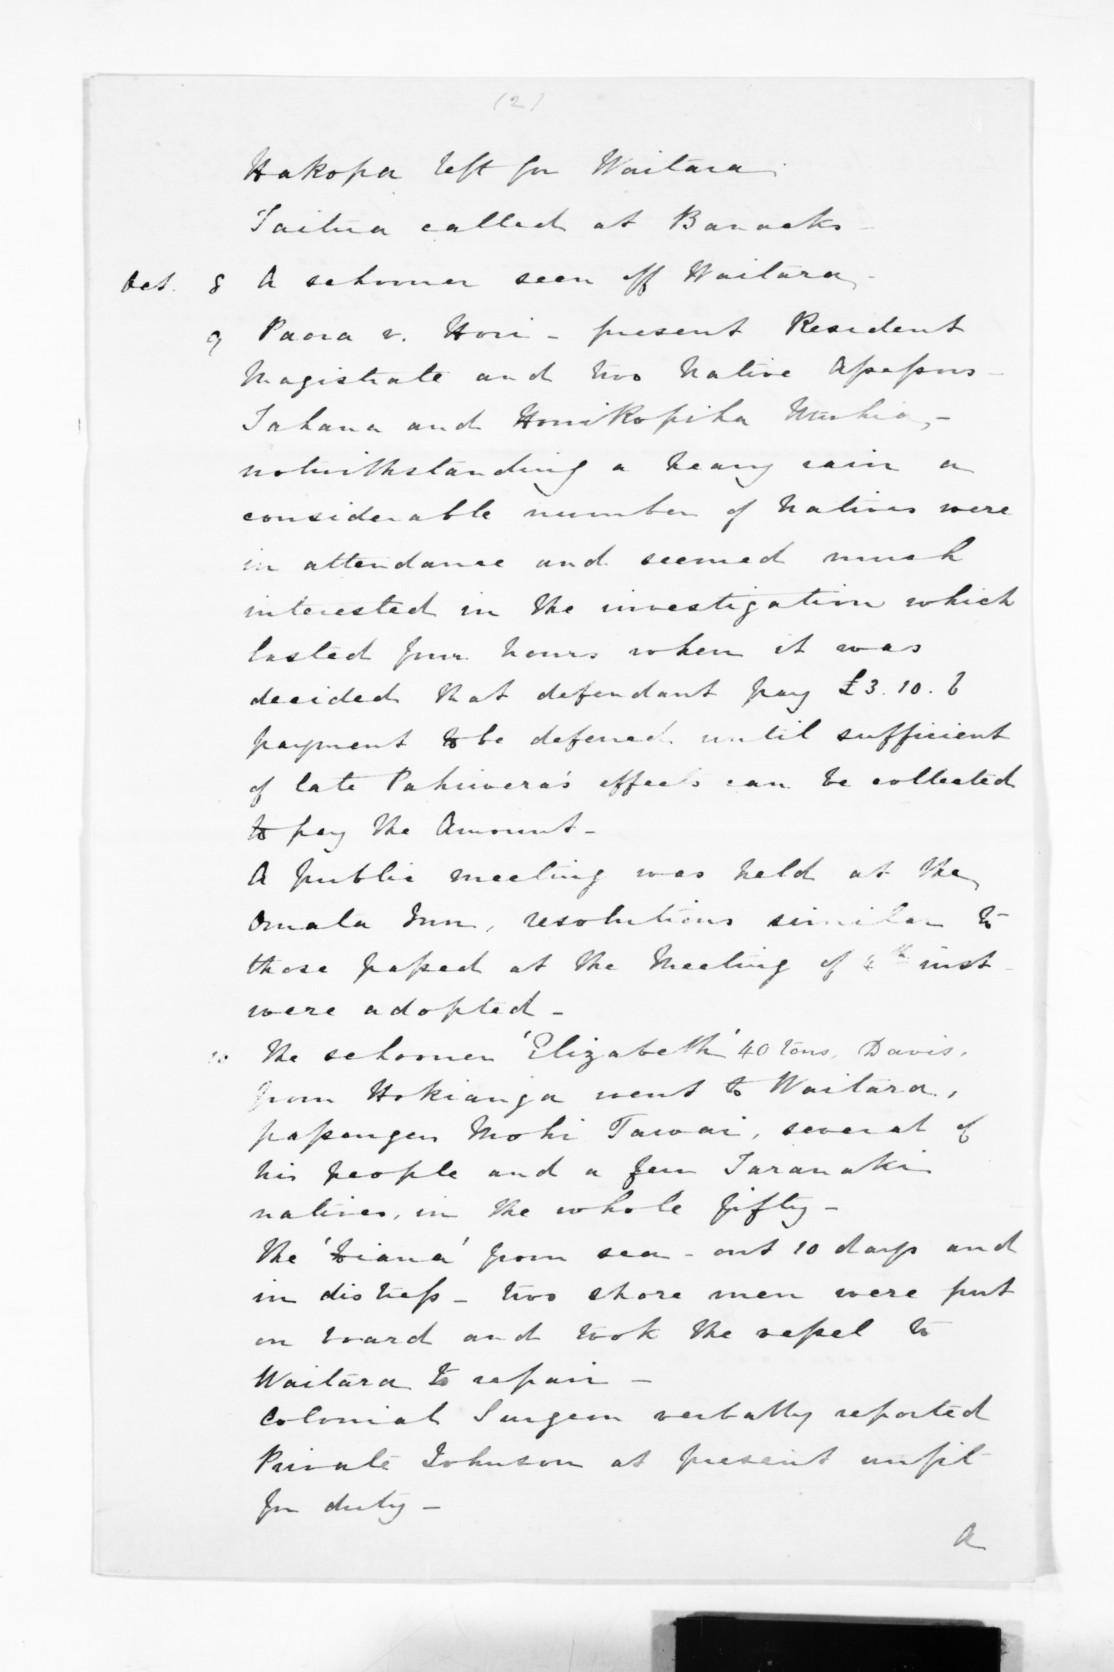 (2)
Hakopa left for Waitara.
Taitua called at Barracks –
Oct. 8 A schooner seen off Waitara –
9 Paora v. Hori – present Resident
Magistrate and two Native Assessors –
Tahana and Honi Kopiha –
notwithstanding a heavy rain a
considerable number of Natives were
in attendance and seemed much
interested in the investigation which
lasted four hours when it was
decided that defendant pay £3.10.6
payment to be deferred until sufficient
of late Pahiwera's effects can be collected
to pay the Amount –
A public meeting was held at the
Omata Inn, resolutions similar to
those passed at the Meeting of 4th inst
were adopted –
10 The schooner 'Elizabeth' 40 tons, Davis,
from Hokianga went to Waitara,
passengers Mohi Tawai, several of
his people and a few Taranaki
natives, in the whole fifty –
The from sea – out 10 days and
in distress – two shore men were put
on board and took the vessel to
Waitara to repair –
Colonial Surgeon verbally reported
Private Johnson at present unfit
for duty –
A